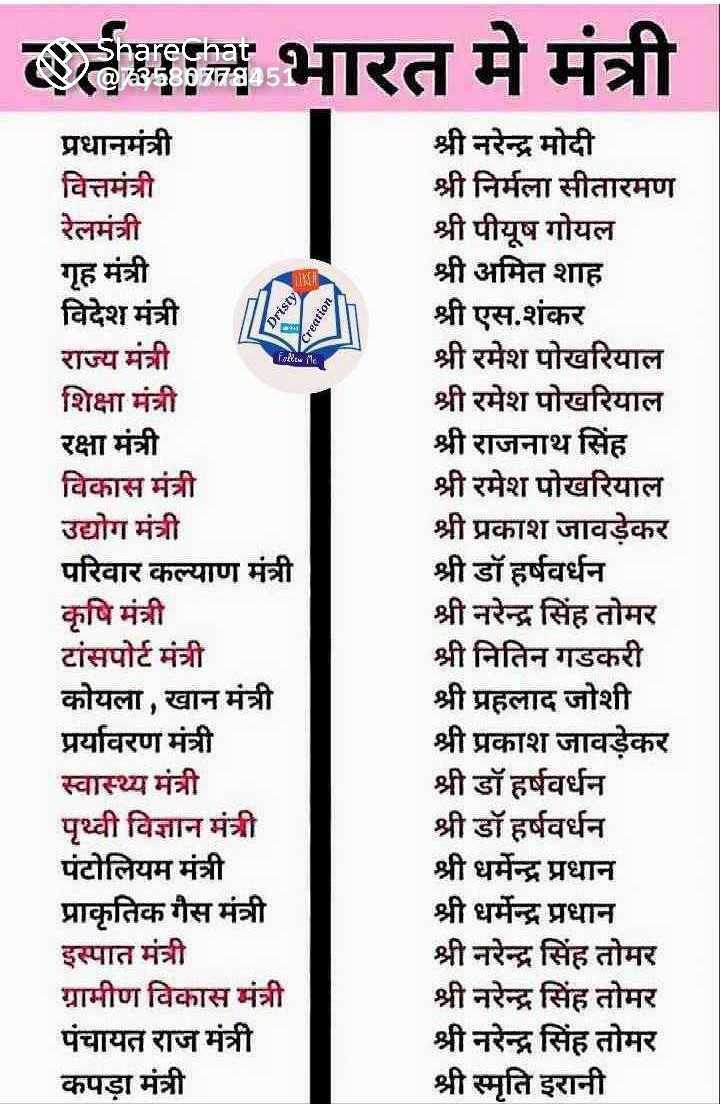 वर्तमान भारत मे मंत्री
ShareChat
प्रधानमंत्री श्री नरेन्द्र मोदी
वित्तमंत्री श्री निर्मला सीतारमण
रेलमंत्री श्री पीयूष गोयल
गृह मंत्री श्री अमित शाह
विदेश मंत्री श्री एस.शंकर
LIKER
Dristy
Creation
Follow Me
राज्य मंत्री श्री रमेश पोखरियाल
शिक्षा मंत्री श्री रमेश पोखरियाल
रक्षा मंत्री श्री राजनाथ सिंह
विकास मंत्री श्री रमेश पोखरियाल
उद्योग मंत्री श्री प्रकाश जावड़ेकर
परिवार कल्याण मंत्री श्री डॉ हर्षवर्धन
कृषि मंत्री श्री नरेन्द्र सिंह तोमर
टांसपोर्ट मंत्री श्री नितिन गडकरी
कोयला , खान मंत्री श्री प्रहलाद जोशी
प्रर्यावरण मंत्री श्री प्रकाश जावड़ेकर
स्वास्थ्य मंत्री श्री डॉ हर्षवर्धन
पृथ्वी विज्ञान मंत्री श्री डॉ हर्षवर्धन
पंटोलियम मंत्री श्री धर्मेन्द्र प्रधान
प्राकृतिक गैस मंत्री श्री धर्मेन्द्र प्रधान
इस्पात मंत्री श्री नरेन्द्र सिंह तोमर
ग्रामीण विकास मंत्री श्री नरेन्द्र सिंह तोमर
पंचायत राज मंत्री श्री नरेन्द्र सिंह तोमर
कपड़ा मंत्री श्री स्मृति इरानी